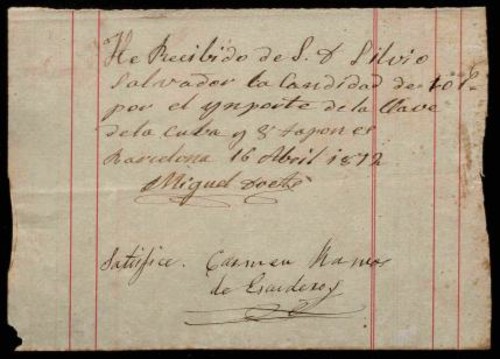 He Recibido de S. D Silvio
Salvador la Candidad de
por el ynporte de la llave
de la Cuba y 8 tapones
Barcelona 16 Abril 1872
Miguel
Satisfice. Carmen Ramos
de